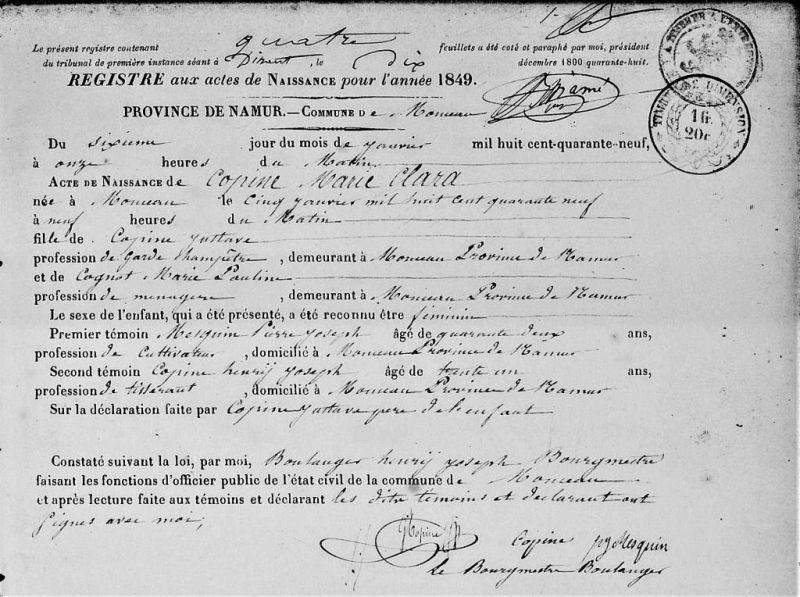 Le présent registre contenant quatre feuillets a été coté et paraphé par moi, président
du tribunal de première instance séant à Dinant, le dix décembre 1800 quarante-huit.
REGISTRE aux actes de NAISSANCE pour l'année 1849.
PROVINCE DE NAMUR.—COMMUNE De Monceau
TIMBRE DE DIMENSION
1 fr.
20 c
Du sixieme jour du mois de janvier mil huit cent-quarante-neuf,
à onze heures du Matin
ACTE DE NAISSANCE de Copine Marie Clara
née à Monceau le Cinq janvier mil huit cent quarante neuf
à neuf heures du Matin
fille de Copine Gustave
profession de Garde Champêtre, demeurant à Monceau Province de Namur
et de Cognot Marie Pauline
profession de menagere, demeurant à Monceau Province de Namur
Le sexe de l'enfant, qui a été présenté, a été reconnu être féminin
Premier témoin Mesquin Pierre Joseph âgé de quarante deux ans,
profession de Cultivateur, domicilié à Monceau Province de Namur
Second témoin Copine henrij Joseph âgé de trente un ans,
profession de tisserant, domicilié à Monceau Province de Namur
Sur la déclaration faite par Copine Gustave pere de l'enfant
Constaté suivant la loi, par moi, Boulanger henrij joseph Bourgmestre
faisant les fonctions d'officier public de l'état civil de la commune de Monceau
et après lecture faite aux témoins et déclarant les dits témoins et declarant ont
signés avec moi,
Copine Copine pj Mesquin
Le Bourgmestre Boulanger